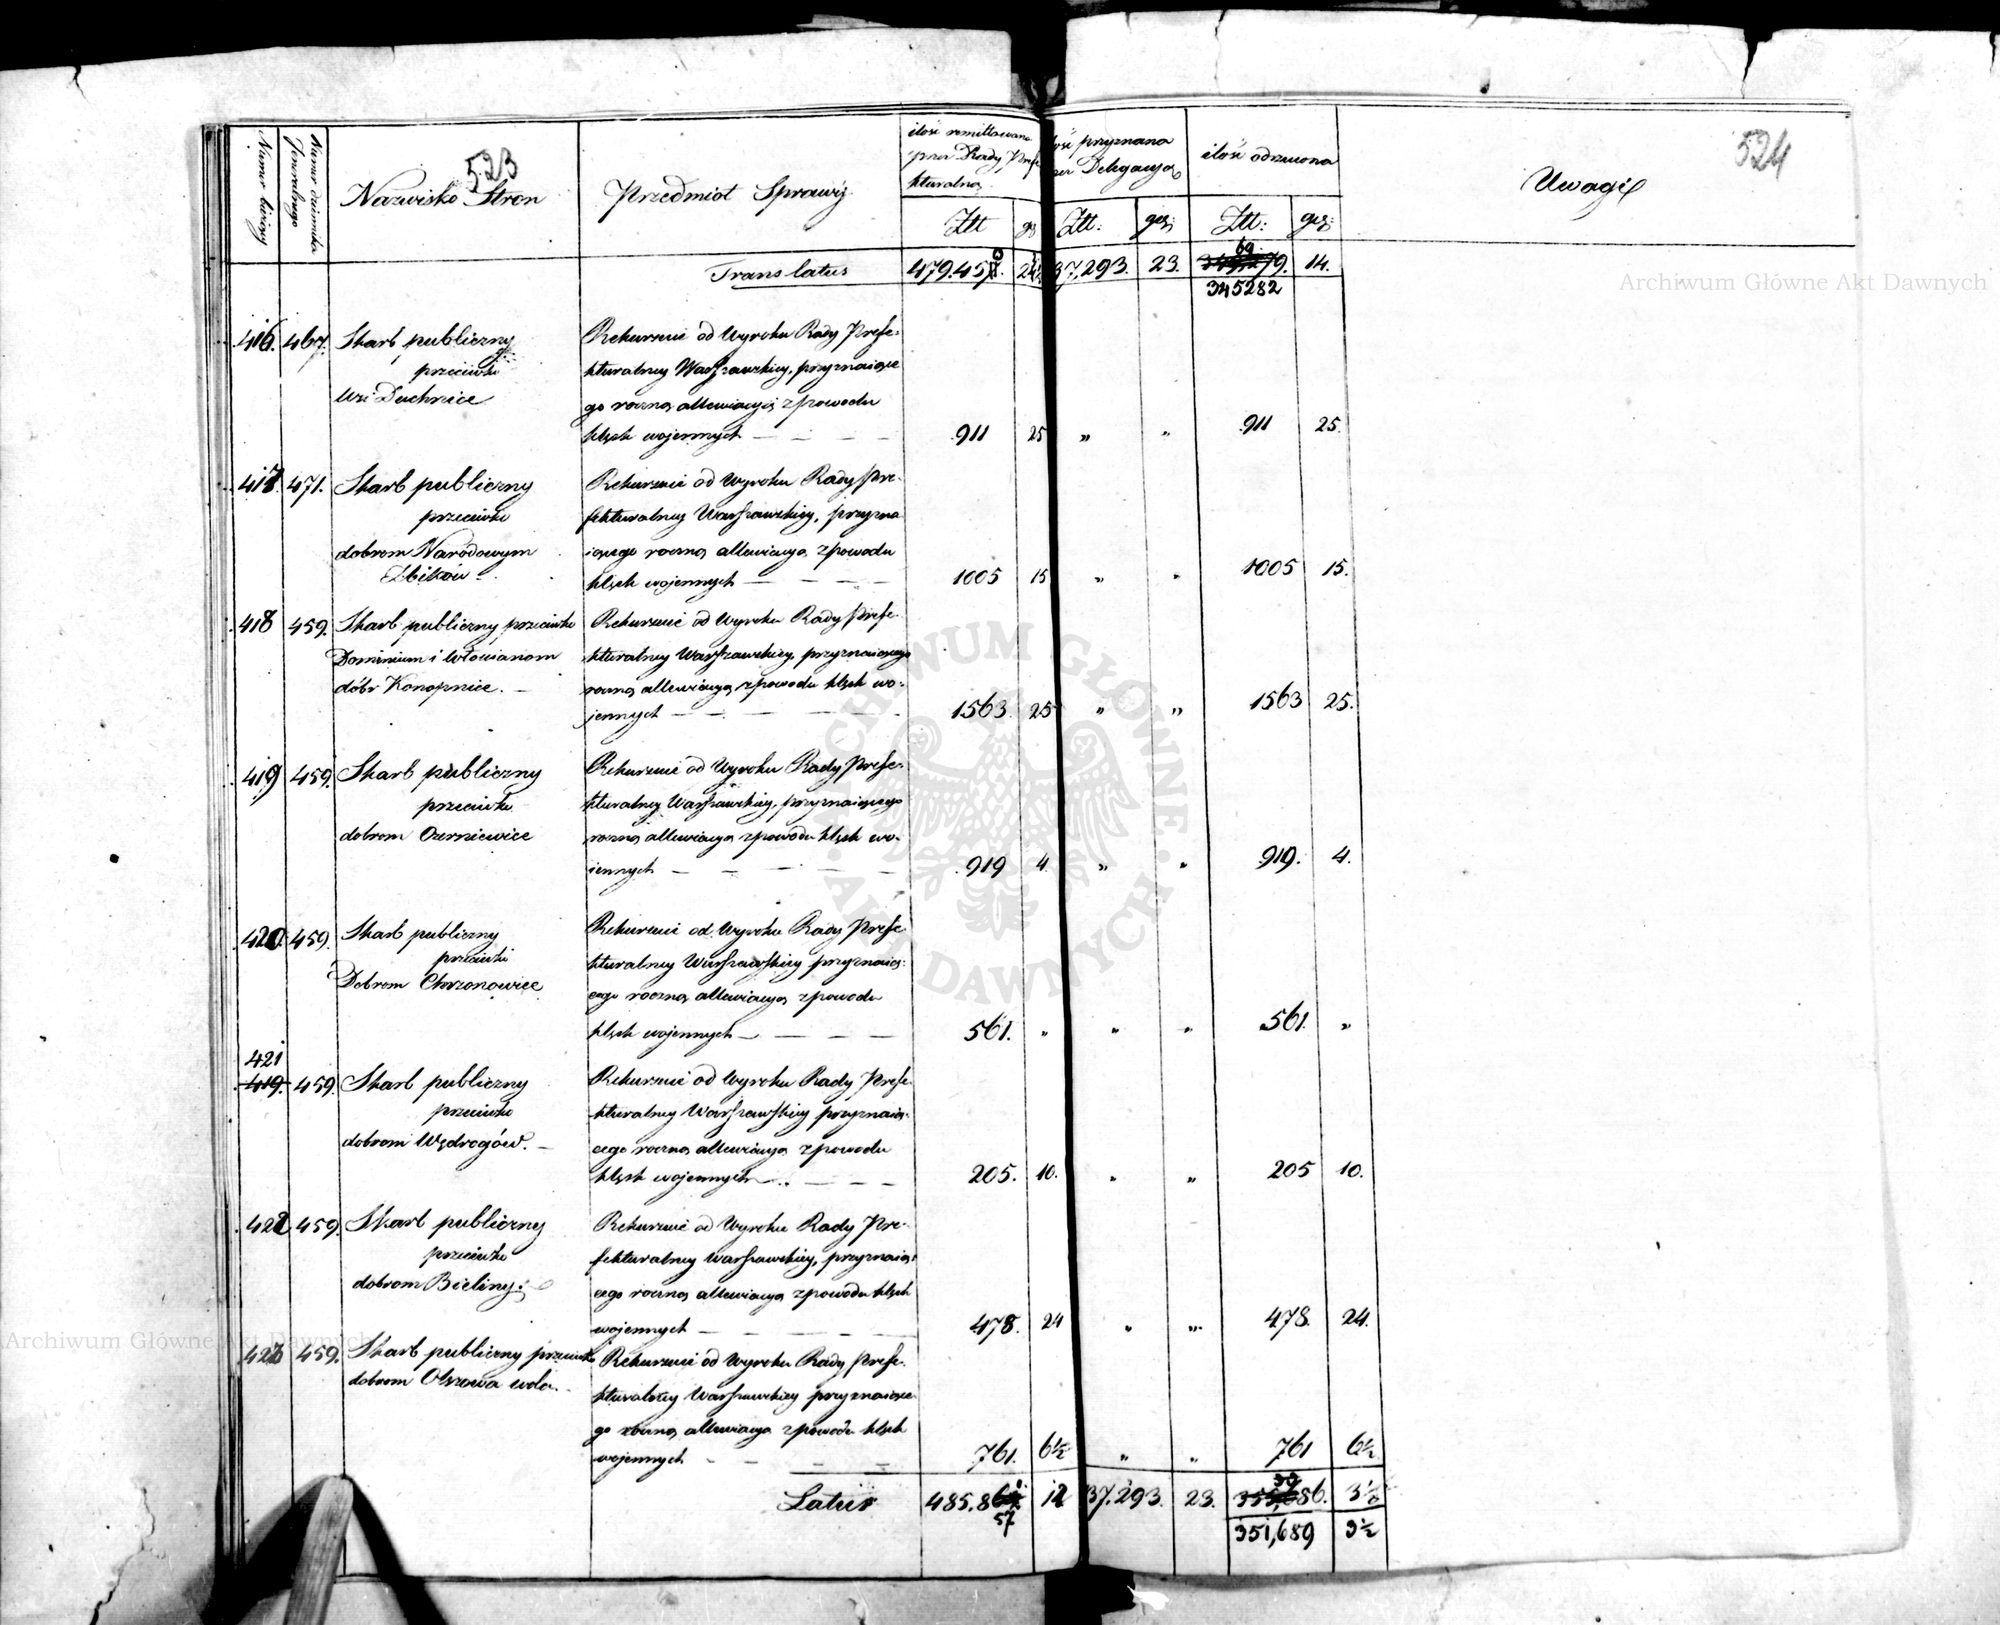 523
524
Numer bieżący
Numer dziennika Jeneralnego
Nazwisko Stron
Przedmiot Sprawÿ
ilość remittowana
przez Radę Prefe
kturalną
Złł gr
ilość przyznana
przez Delegacyą
Złł: grz:
ilość odrzucona
Złł: grz:
Uwagi
Translatus 479.45 24 37.293. 23. 79. 14.
69
345282
416. 467. Skarb publiczny
przeciwko
Wsi Duchnice
Rekursuie od Wyroku Rady Prefe-
kturalney Warszawskiey, przyznaiące
go roczną allewiacyią z powodu
klęsk wojennych — — — — 911 25 „ „ 911 25.
417. 471. Skarb publiczny
przeciwko
dobrom Narodowym
Zbików
Rekursuie od Wyroku Rady Pre-
fekturalney Warszawskiey, przyzna
iącego roczną allewiacyą z powodu
klęsk wojennych — — — — 1005 15 „ „ 1005 15.
418 459. Skarb publiczny przeciwko
Dominium i Włościanom
dóbr Konopnice. —
Rekursuie od Wyroku Rady Prefe-
kturalney Warszawskiey, przyznaiącego
roczną allewiacyą z powodu klęsk wo-
jennych — — — — 1563. 25 „ „ 1563 25.
419 459. Skarb publiczny
przeciwko
dobrom Czerniewice
Rekursuie od Wyroku Rady Prefe-
kturalney Warszawskiey, przyznaiącego
roczną allewiacyą z powodu klęsk wo-
iennych — — — — 919 4 „ „ 919. 4.
420. 459. Skarb publiczny
przeciwko
Dobrom Chrzonowice
Rekursuie od Wyroku Rady Prefe
kturalney Warszawskiey przyznaią-
cego roczną allewiacyą z powodu
klęsk wojennych — — — — 561. „ „ „ 561. „
421
419. 459. Skarb publiczny
przeciwko
dobrom Wędrogów. —
Rekursuie od Wyroku Rady Prefe-
kturalney Warszawskiey przyznaią-
cego roczną allewiacyą z powodu
klęsk wojennych — — — — 205. 10. „ „ 205 10.
422 459. Skarb publiczny
przeciwko
dobrom Bieliny.
Rekursuie od Wyroku Rady Pre-
fekturalney Warszawskiey, przyznaią-
cego roczną allewiacyą z powodu klęsk
wojennych — — — — 478. 24 „ „ 478. 24.
423 459. Skarb publiczny przeciwko
dobrom Olszowa wola.
Rekursuie od Wyroku Rady Prefe-
kturalney Warszawskiey przyznaiące-
go roczną allewiacyą z powodu klęsk
wojennych — — — — 761. 6½ „ „ 761 6½
Latus 485.8 12 37.293. 23. 86. 3½
57
39
351,689 3½
Archiwum Główne Akt Dawnych
Archiwum Główne Akt Dawnych
ARCHIWUM GŁÓWNE · AKT DAWNYCH ·